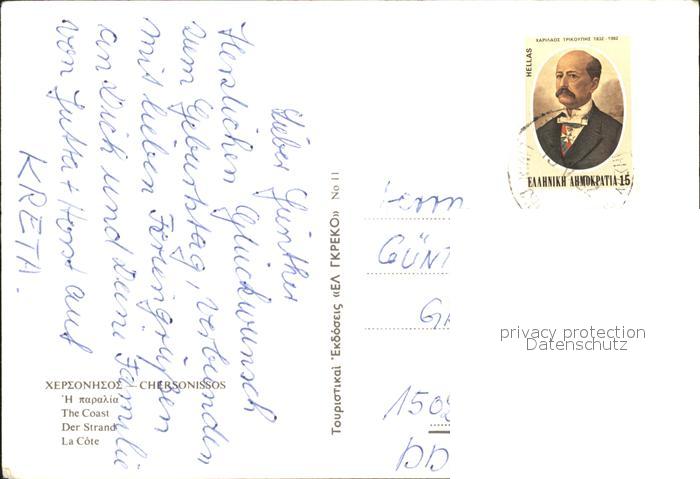 Lieber Günther
Herzlichen Glückwunsch
zum Geburtstag, verbunden
mit lieben Feriengrüßen
an Dich und Deine Familie
von Jutta + Horst aus
KRETA.
ΧΕΡΣΟΝΗΣΟΣ – CHERSONISSOS
Ἡ παραλία
The Coast
Der Strand
La Côte
Τουριστικαὶ Ἐκδόσεις «ΕΛ ΓΚΡΕΚΟ» No 11
ΧΑΡΙΛΑΟΣ ΤΡΙΚΟΥΠΗΣ 1832 - 1982
HELLAS
ΕΛΛΗΝΙΚΗ ΔΗΜΟΚΡΑΤΙΑ 15
Herrn
GÜNT
GA
1502
DD
privacy protection
Datenschutz